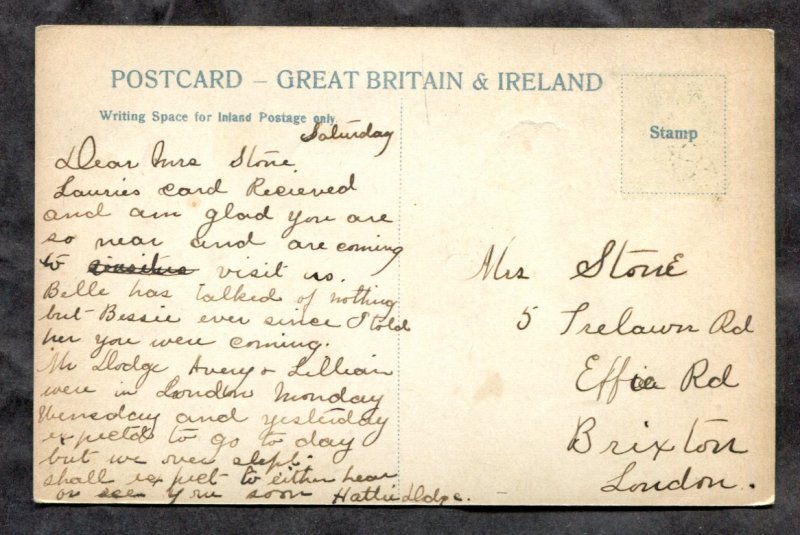 POSTCARD – GREAT BRITAIN & IRELAND
Writing Space for Inland Postage only
Stamp
Saturday
Dear Mrs Stone.
Lauries card Recieved
and am glad you are
so near and are coming
to visit us.
Belle has talked of nothing
but Bessie ever since I told
her you were coming.
Mr Dodge Avery & Lillian
were in London Monday
Wensday and yesterday
expected to go to day
but we over slept.
shall expect to either hear
or see you soon Hattie Dodge.
Mrs Stone
5 Trelawn Rd
Effra Rd
Brixton
London.